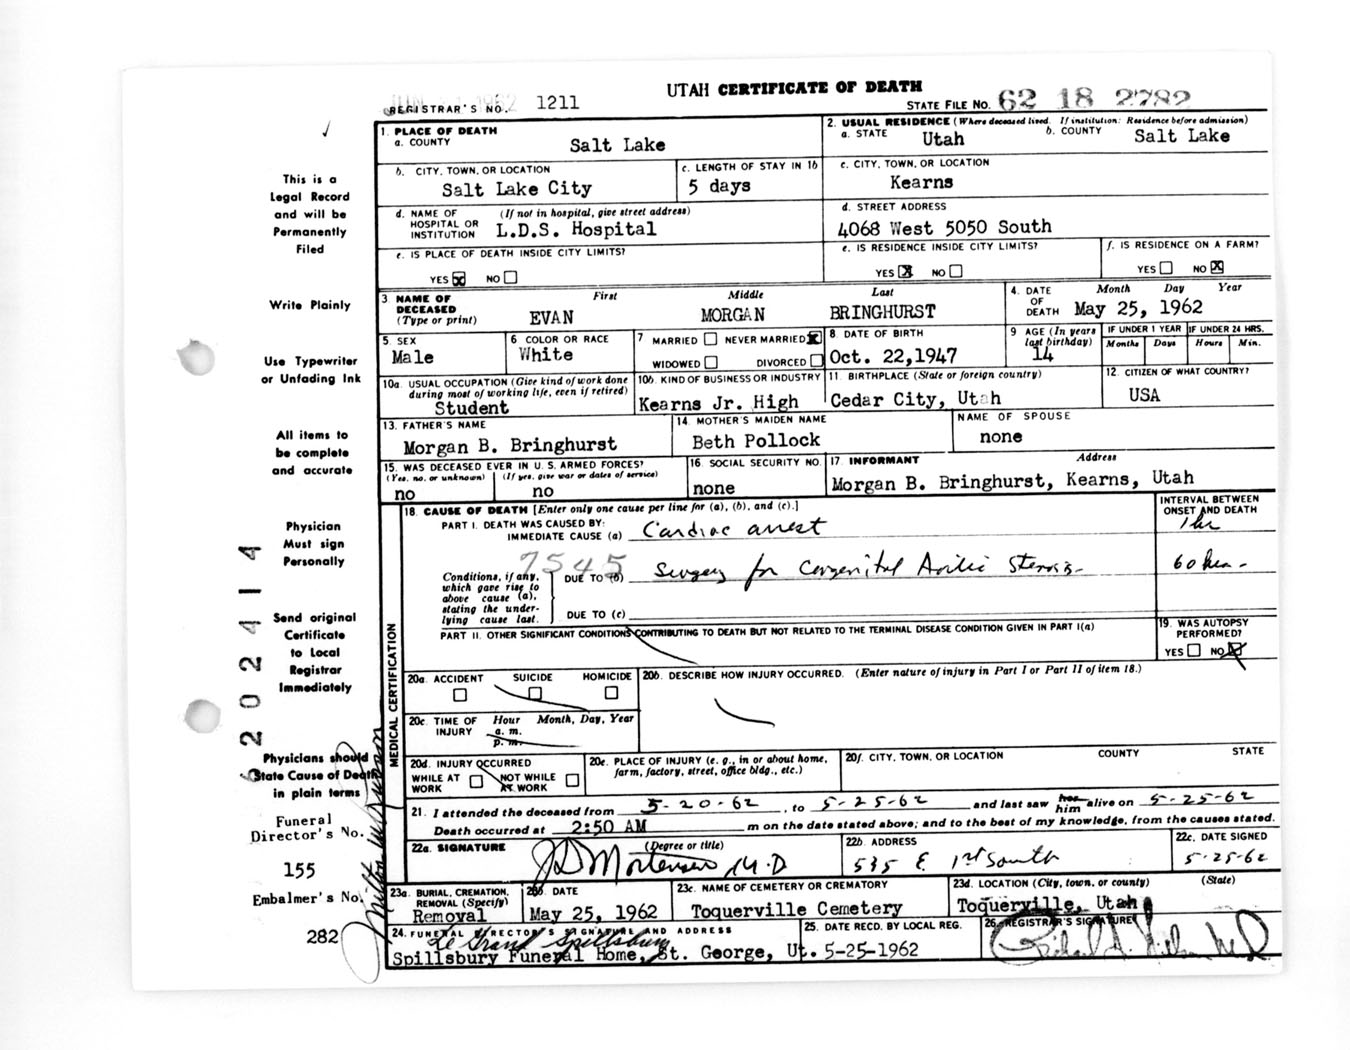 UTAH CERTIFICATE OF DEATH
REGISTRAR'S NO. 1211
STATE FILE NO. 62 18 2782
1. PLACE OF DEATH
a. COUNTY Salt Lake
2. USUAL RESIDENCE (Where deceased lived. If institution: Residence before admission)
a. STATE Utah b. COUNTY Salt Lake
b. CITY, TOWN, OR LOCATION Salt Lake City
c. LENGTH OF STAY IN 1b 5 days
c. CITY, TOWN, OR LOCATION Kearns
d. NAME OF HOSPITAL OR INSTITUTION (If not in hospital, give street address) L.D.S. Hospital
d. STREET ADDRESS 4068 West 5050 South
e. IS PLACE OF DEATH INSIDE CITY LIMITS?
YES ☒ NO ☐
e. IS RESIDENCE INSIDE CITY LIMITS?
YES ☒ NO ☐
f. IS RESIDENCE ON A FARM?
YES ☐ NO ☒
3 NAME OF DECEASED (Type or print)
First Middle Last
EVAN MORGAN BRINGHURST
4. DATE OF DEATH Month Day Year
May 25, 1962
5. SEX Male
6 COLOR OR RACE White
7 MARRIED ☐ NEVER MARRIED ☒
WIDOWED ☐ DIVORCED ☐
8 DATE OF BIRTH Oct. 22,1947
9 AGE (In years last birthday) 14
IF UNDER 1 YEAR IF UNDER 24 HRS.
Months Days Hours Min.
10a. USUAL OCCUPATION (Give kind of work done during most of working life, even if retired) Student
10b. KIND OF BUSINESS OR INDUSTRY Kearns Jr. High
11. BIRTHPLACE (State or foreign country) Cedar City, Utah
12. CITIZEN OF WHAT COUNTRY? USA
13. FATHER'S NAME Morgan B. Bringhurst
14. MOTHER'S MAIDEN NAME Beth Pollock
NAME OF SPOUSE none
15. WAS DECEASED EVER IN U.S. ARMED FORCES?
(Yes, no, or unknown) (If yes, give war or dates of service)
no no
16. SOCIAL SECURITY NO. none
17. INFORMANT Address
Morgan B. Bringhurst, Kearns, Utah
18. CAUSE OF DEATH [Enter only one cause per line for (a), (b), and (c).]
INTERVAL BETWEEN ONSET AND DEATH
PART I. DEATH WAS CAUSED BY:
IMMEDIATE CAUSE (a) Cardiac arrest 1 hr
7545
Conditions, if any, which gave rise to above cause (a), stating the underlying cause last.
DUE TO (b) Surgery for Congenital Aortic Stenosis 60 hrs -
DUE TO (c)
PART II. OTHER SIGNIFICANT CONDITIONS CONTRIBUTING TO DEATH BUT NOT RELATED TO THE TERMINAL DISEASE CONDITION GIVEN IN PART I(a)
19. WAS AUTOPSY PERFORMED?
YES ☐ NO ☒
MEDICAL CERTIFICATION
20a. ACCIDENT SUICIDE HOMICIDE
20b. DESCRIBE HOW INJURY OCCURRED. (Enter nature of injury in Part I or Part II of item 18.)
20c. TIME OF INJURY Hour Month, Day, Year
a. m.
p. m.
20d. INJURY OCCURRED
WHILE AT WORK ☐ NOT WHILE AT WORK ☐
20e. PLACE OF INJURY (e. g., in or about home, farm, factory, street, office bldg., etc.)
20f. CITY, TOWN, OR LOCATION COUNTY STATE
21. I attended the deceased from 5-20-62, to 5-25-62 and last saw her him alive on 5-25-62
Death occurred at 2:50 AM m on the date stated above; and to the best of my knowledge, from the causes stated.
22a. SIGNATURE (Degree or title) JD Mortensen M.D
22b. ADDRESS 535 E 1st South
22c. DATE SIGNED 5-25-62
23a. BURIAL, CREMATION, REMOVAL (Specify) Removal
23b. DATE May 25, 1962
23c. NAME OF CEMETERY OR CREMATORY Toquerville Cemetery
23d. LOCATION (City, town, or county) (State) Toquerville, Utah
24. FUNERAL DIRECTOR'S SIGNATURE AND ADDRESS
LeGrand Spillsbury
Spillsbury Funeral Home, St. George, Ut.
25. DATE RECD. BY LOCAL REG. 5-25-1962
26. REGISTRAR'S SIGNATURE
This is a
Legal Record
and will be
Permanently
Filed
Write Plainly
Use Typewriter
or Unfading Ink
All items to
be complete
and accurate
Physician
Must sign
Personally
Send original
Certificate
to Local
Registrar
Immediately
Physicians should
State Cause of Death
in plain terms
Funeral
Director's No.
155
Embalmer's No.
282
202414